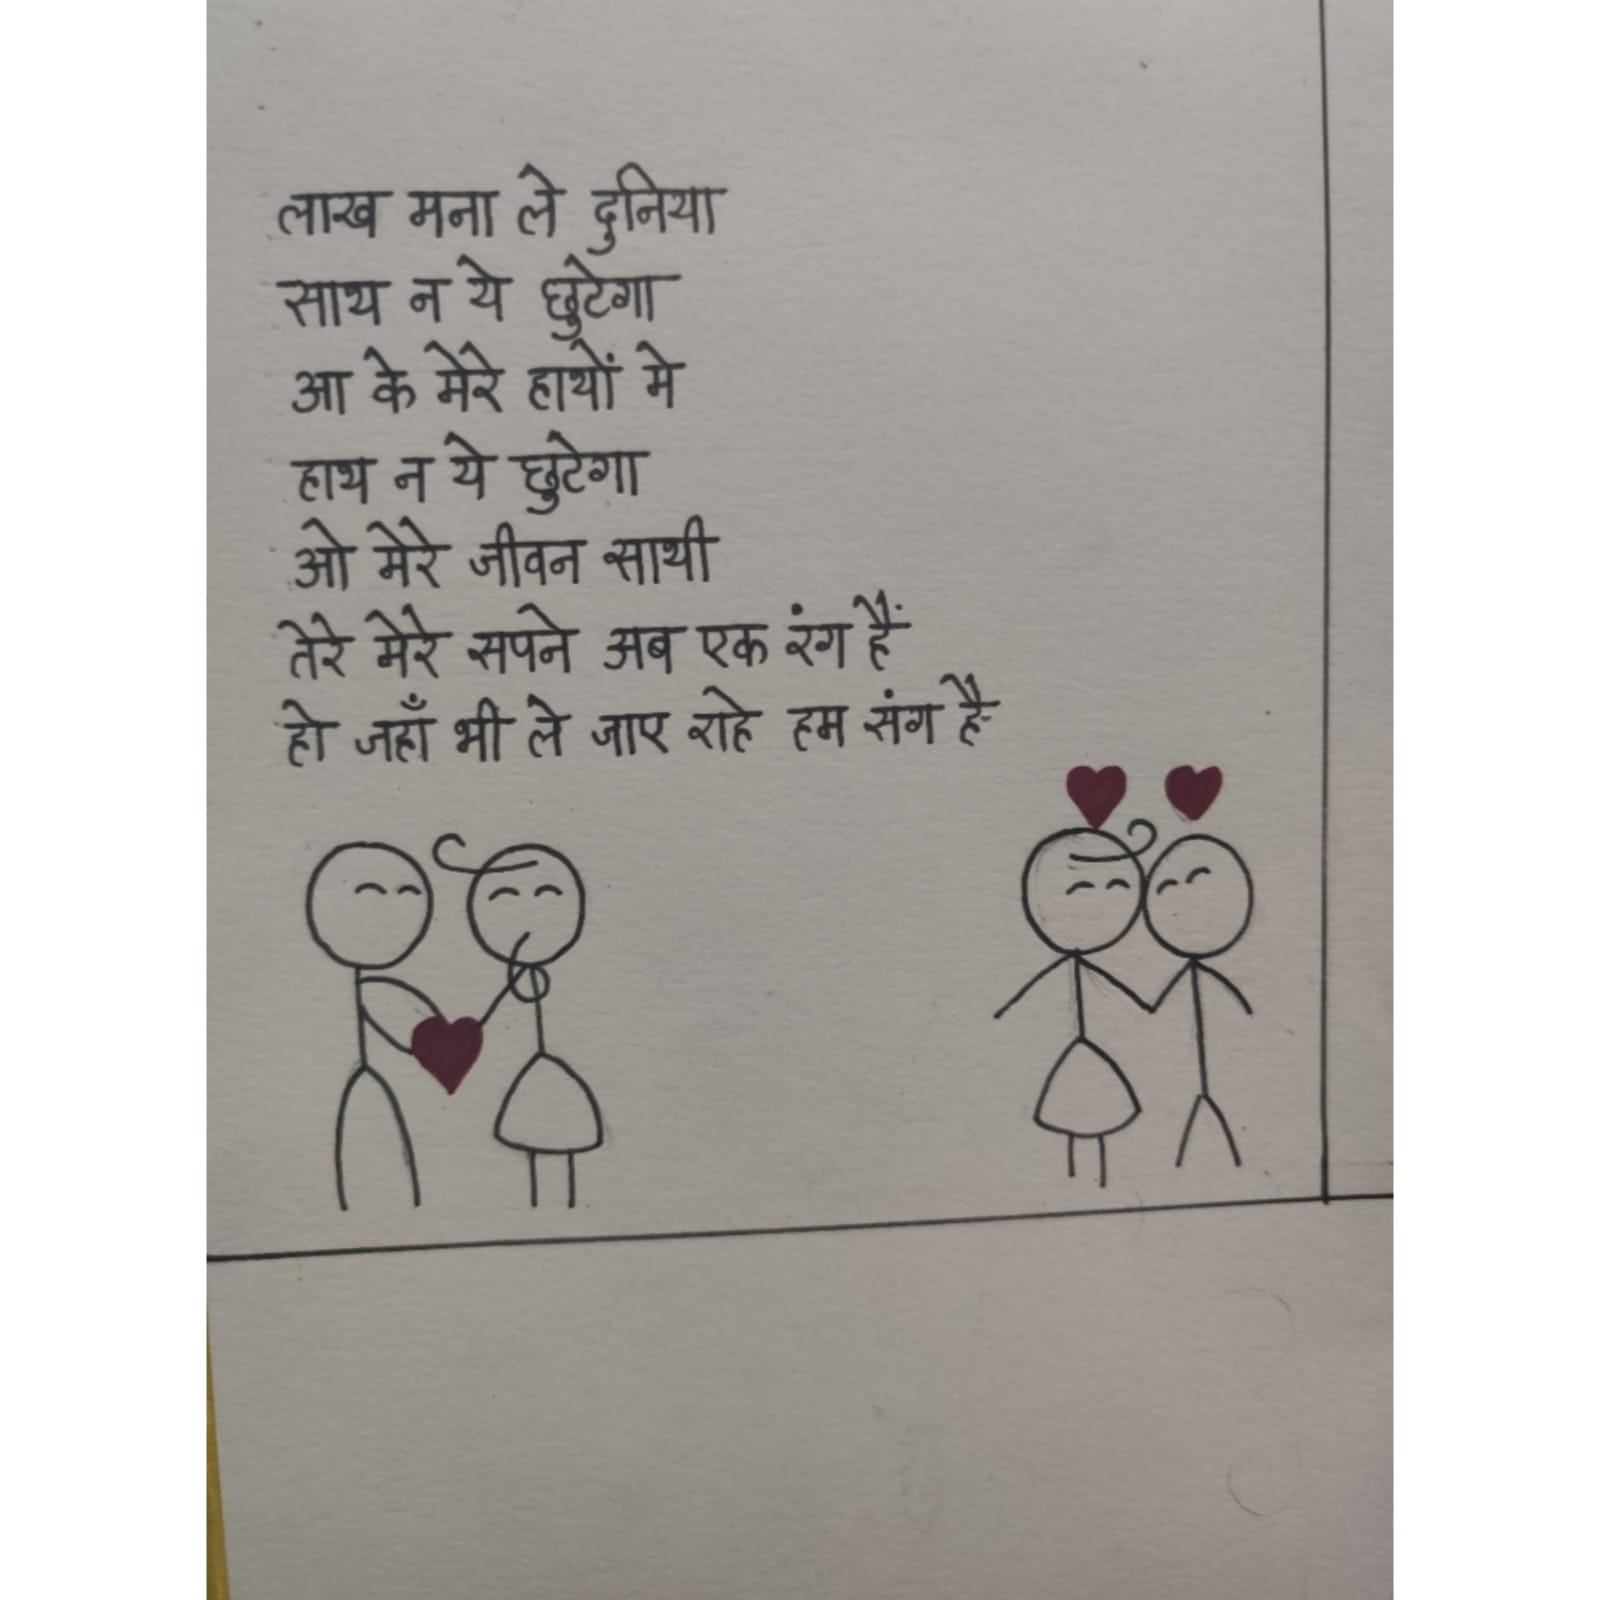 लाख मना ले दुनिया
साथ न ये छुटेगा
आ के मेरे हाथों मे
हाथ न ये छुटेगा
ओ मेरे जीवन साथी
तेरे मेरे सपने अब एक रंग हैं
हो जहाँ भी ले जाए राहे हम संग है